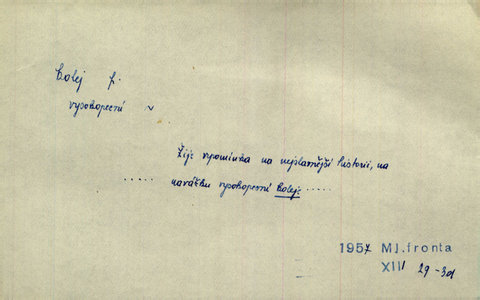 kolej f.
vysokopecní v
Žije vzpomínka na nejslavnější historii, na
..... navážku vysokopecní koleje .....
1957 Ml.fronta
XIII 29-30